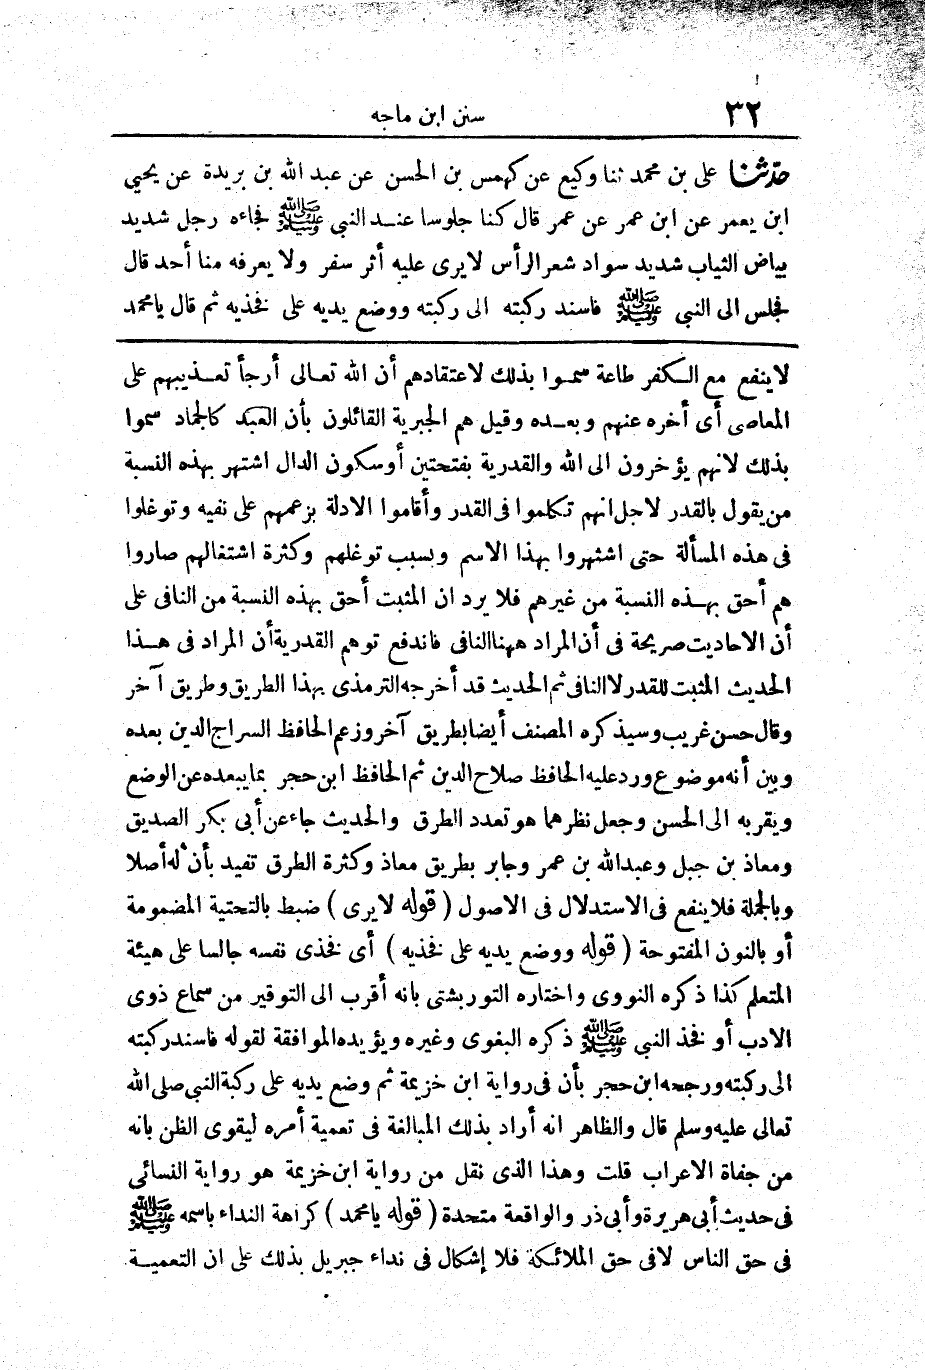 ٣٢
سنن ابن ماجه
حدثنا على بن محمد ثنا وكيع عن كهمس بن الحسن عن عبد الله بن بريدة عن يحيي
ابن يعمر عن ابن عمر عن عمر قال كنا جلوسا عنـد النبي ﷺ فجاءه رجل شديد
بياض الثياب شديد سواد شعر الرأس لا يرى عليه أثر سفر ولا يعرفه منا أحد قال
فجلس الى النبي ﷺ فاسند ركبته الى ركبته ووضع يديه على فخذيه ثم قال يامحمد
لا ينفع مع الـكفر طاعة سمـوا بذلك لاعتقادهم أن الله تعـالى أرجأ تعـذيبهم على
المعاصى أى أخره عنهم وبعـده وقيل هم الجبرية القائلون بأن العبد كالجماد سموا
بذلك لانهم يؤخرون الى الله والقدرية بفتحتين أوسكون الدال اشتهر بهذه النسبة
من يقول بالقدر لاجل انهم تكلموا فى القدر وأقاموا الادلة بزعمهم على نفيه وتوغلوا
فى هذه المسألة حتى اشتهروا بهذا الاسم وبسبب توغلهم وكثرة اشتغالهم صاروا
هم أحق بهـذه النسبة من غيرهم فلا يرد ان المثبت أحق بهذه النسبة من النافى على
أن الاحاديث صريحة فى أن المراد ههنا النافى فاندفع توهم القدرية أن المراد فى هـذا
الحديث المثبت للقدر لا النافى ثم الحديث قد أخرجه الترمذى بهذا الطريق وطريق آخر
وقال حسن غريب وسيذكره المصنف أيضا بطريق آخر وزعم الحافظ السراج الدين بعده
وبين أنه موضوع ورد عليه الحافظ صلاح الدين ثم الحافظ ابن حجر بما يبعده عن الوضع
ويقربه الى الحسن وجعل نظرهما هو تعدد الطرق والحديث جاء عن أبى بكر الصديق
ومعاذ بن جبل وعبدالله بن عمر وجابر بطريق معاذ وكثرة الطرق تفيد بأن له أصلا
وبالجملة فلا ينفع فى الاستدلال فى الاصول ( قوله لا يرى ) ضبط بالتحتية المضمومة
أو بالنون المفتوحة ( قوله ووضع يديه على فخذيه ) أى فخذى نفسه جالسا على هيئة
المتعلم كذا ذكره النووى واختاره التوربشتى بانه أقرب الى التوقير من سماع ذوى
الادب أو فخذ النبي ﷺ ذكره البغوى وغيره ويؤيده الموافقة لقوله فاسند ركبته
الى ركبته ورجحه ابن حجر بأن فى رواية ابن خزيمة ثم وضع يديه على ركبة النبي صلى الله
تعالى عليه وسلم قال والظاهر انه أراد بذلك المبالغة فى تعمية أمره ليقوى الظن بانه
من جفاة الاعراب قلت وهذا الذى نقل من رواية ابن خزيمة هو رواية النسائى
فى حديث أبى هريرة وأبى ذر والواقعة متحدة ( قوله يامحمد ) كراهة النداء باسمه ﷺ
فى حق الناس لا فى حق الملائكة فلا إشكال فى نداء جبريل بذلك على ان التعميـة